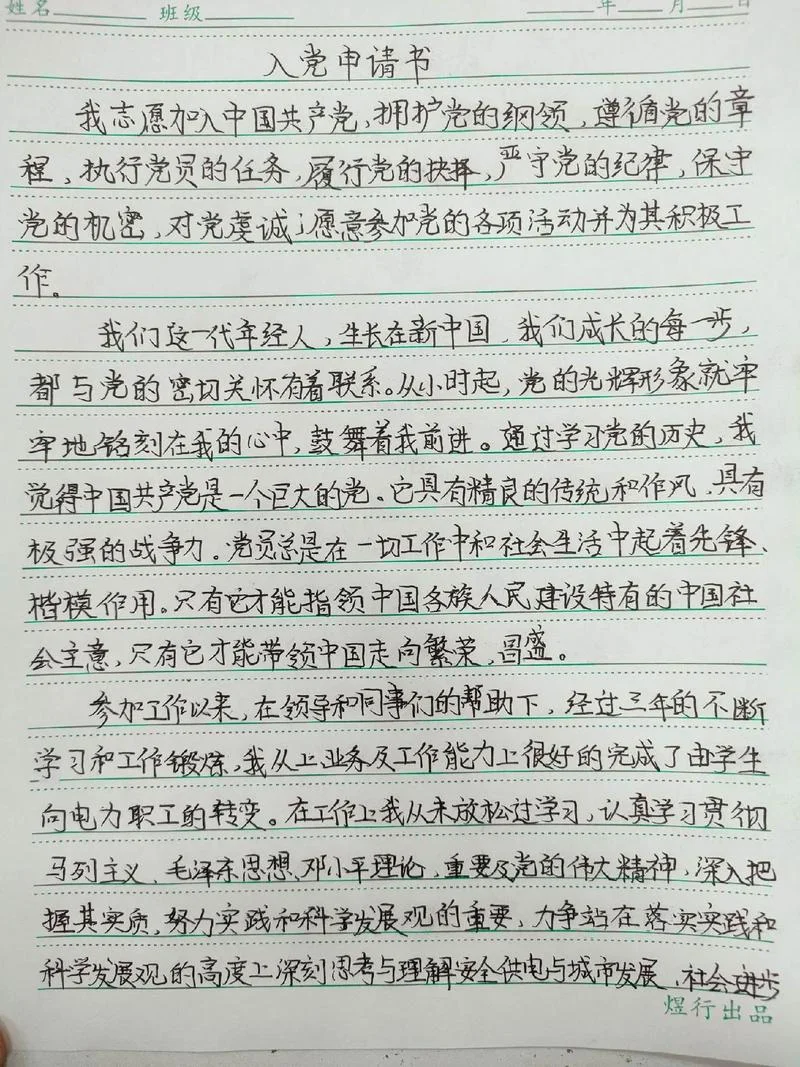 姓名 班级 年 月 日
入党申请书
我志愿加入中国共产党,拥护党的纲领,遵循党的章
程、执行党员的任务,履行党的抉择,严守党的纪律,保守
党的机密,对党虔诚;愿意参加党的各项活动并为其积极工
作。
我们这一代年经人,生长在新中国,我们成长的每一步,
都与党的密切关怀有着联系。从小时起,党的光辉形象就牢
牢地铭刻在我的心中,鼓舞着我前进。通过学习党的历史,我
觉得中国共产党是一个巨大的党。它具有精良的传统和作风、具有
极强的战争力。党员总是在一切工作中和社会生活中起着先锋、
楷模作用。只有它才能指领中国各族人民建设特有的中国社
会主意,只有它才能带领中国走向繁荣,昌盛。
参加工作以来,在领导和同事们的帮助下,经过三年的不断
学习和工作锻炼,我从上业务及工作能力上很好的完成了由学生
向电力职工的转变。在工作上我从未放松过学习,认真学习贯彻
马列主义、毛泽东思想、邓小平理论,重要及党的伟大精神,深入把
握其实质,努力实践和科学发展观的重要,力争站在落实实践和
科学发展观的高度上深刻思考与理解安全供电与城市发展、社会进步
煜行出品